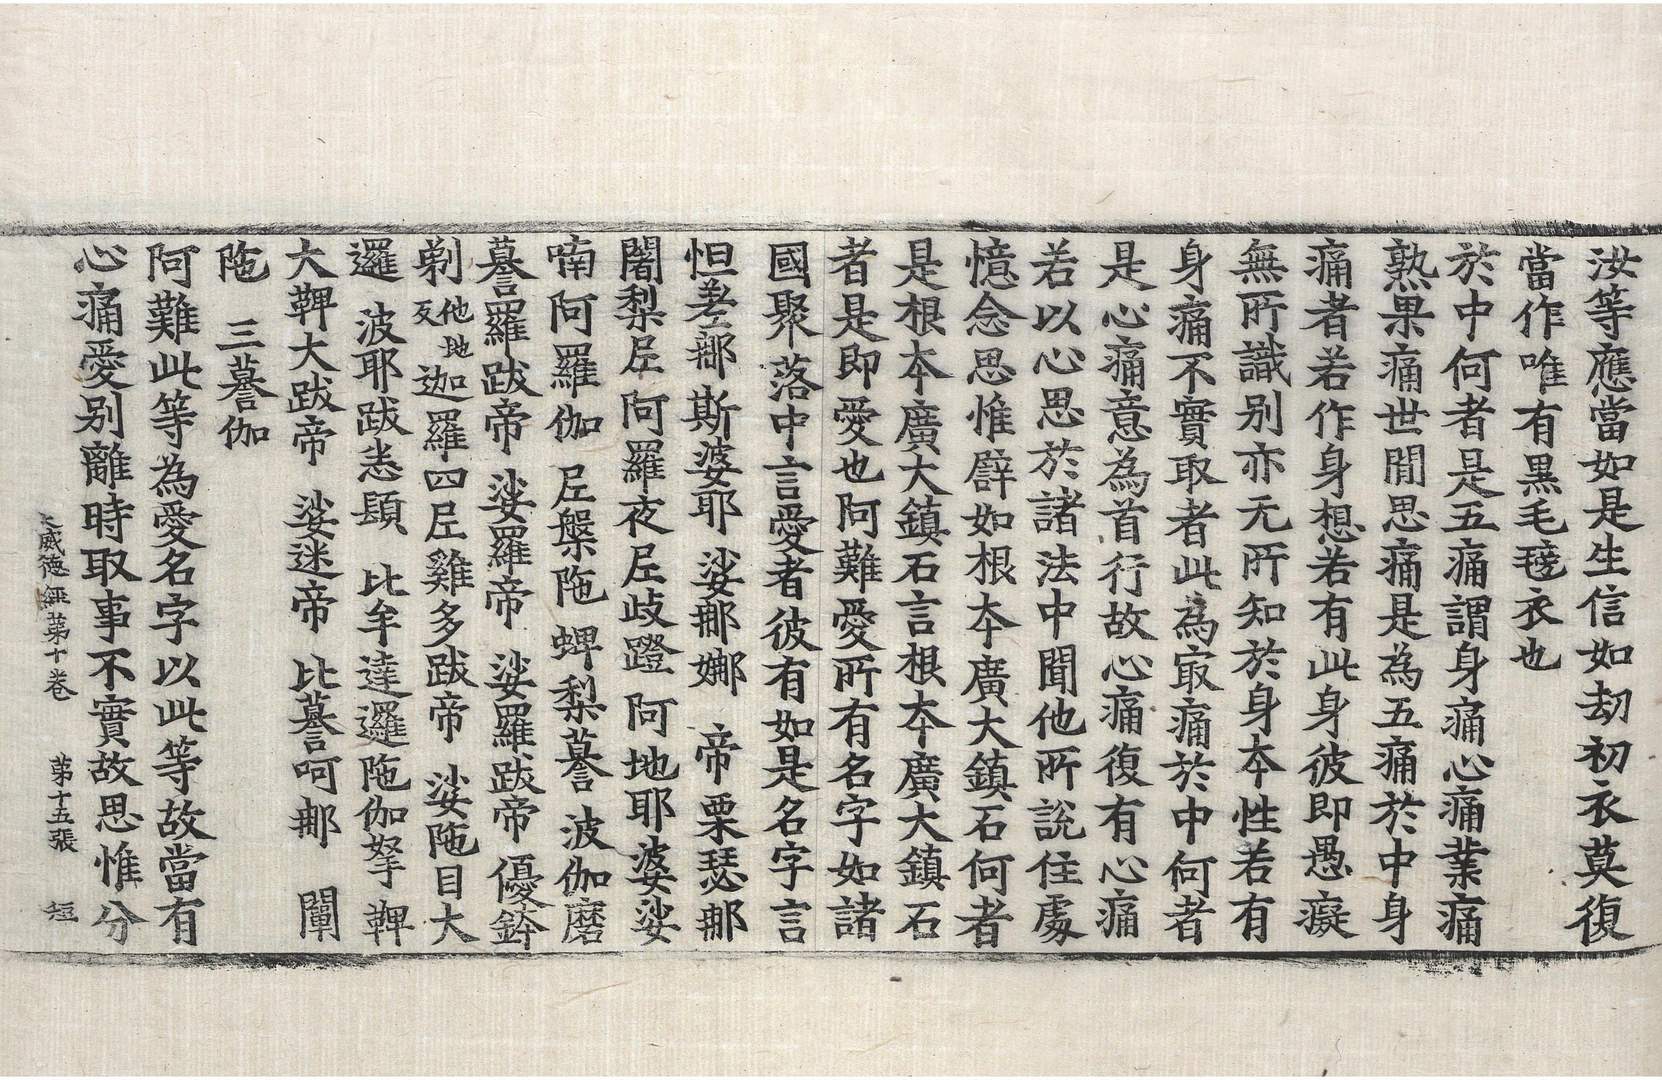 汝等應當如是生信如劫初衣莫復
當作唯有黑毛毯衣也
於中何者是五痛謂身痛心痛業痛
熟果痛世間思痛是為五痛於中身
痛者若作身想若有此身彼即愚癡
無所識別亦无所知於身本性若有
身痛不實取者此為㝡痛於中何者
是心痛意為首行故心痛復有心痛
若以心思於諸法中聞他所說住處
憶念思惟譬如根本廣大鎮石何者
是根本廣大鎮石言根本廣大鎮石
者是即愛也阿難愛所有名字如諸
國聚落中言愛者彼有如是名字言
怛差鄔斯婆耶 娑那娜 帝栗瑟那
闍梨𡰱阿羅夜𡰱歧蹬 阿地耶婆娑
喃阿羅伽 𡰱槃陁 蜱梨摹 波伽磨
摹羅跋帝 娑羅帝 娑羅跋帝 優鉢
剃他地反迦羅四𡰱雞多跋帝 娑陁目大
邏 波耶跋恙䫌 比牟達邏陁伽拏 鞞
大鞞大跋帝 娑迷帝 比摹呵那 闡
陁 三摹伽
阿難此等為愛名字以此等故當有
心痛愛別離時取事不實故思惟分
大威德經第十卷 第十五張 短